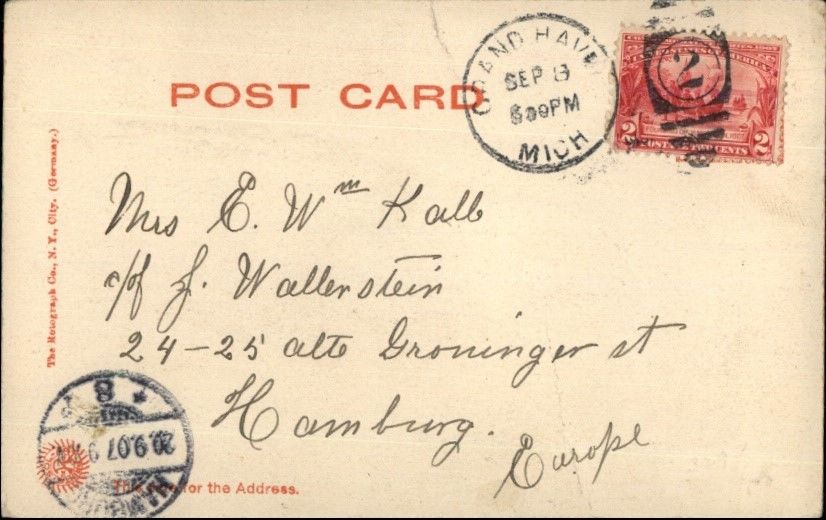 POST CARD
GRAND HAVEN
SEP 13
MICH
2
2 2
The Rotograph Co., N. Y., City. (Germany.)
Mrs E. Wm Kalb
c/o J. Wallerstein
24-25 alte Groninger st
Hamburg.
Europe
8
20.9.07
for the Address.